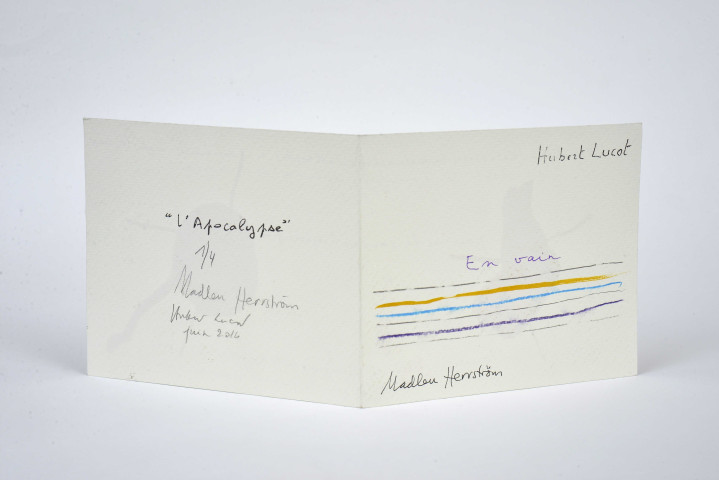 "L'Apocalypse"
1/4
Madlen Herrström
Hubert Lucot
juin 2014
Hubert Lucot
En vain
Madlen Herrström